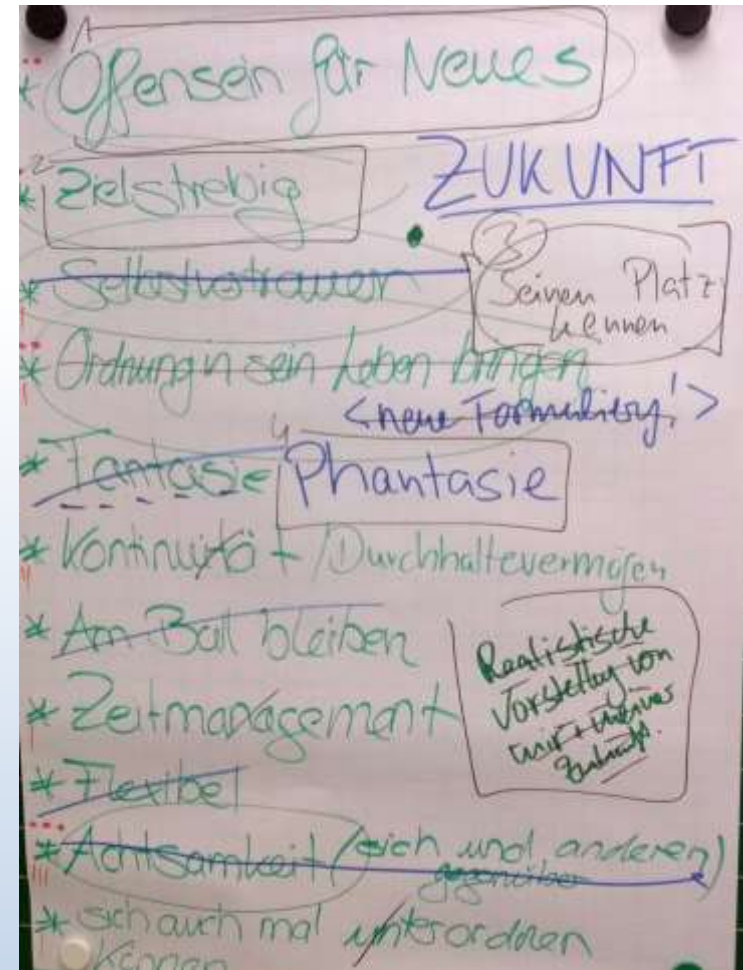 1
* Offensein für Neues
ZUKUNFT
2
* Zielstrebig
* Selbstvertrauen
3
Seinen Platz
kennen
* Ordnung in sein Leben bringen
<neue Formulierg!>
* Fantasie
4
Phantasie
* Kontinuität / Durchhaltevermögen
* Am Ball bleiben
Realistische
Vorstellg von
mir + meiner
Zukunft.
* Zeitmanagement
* Flexibel
* Achtsamkeit (sich und anderen)
gegenüber
* sich auch mal unterordnen
können